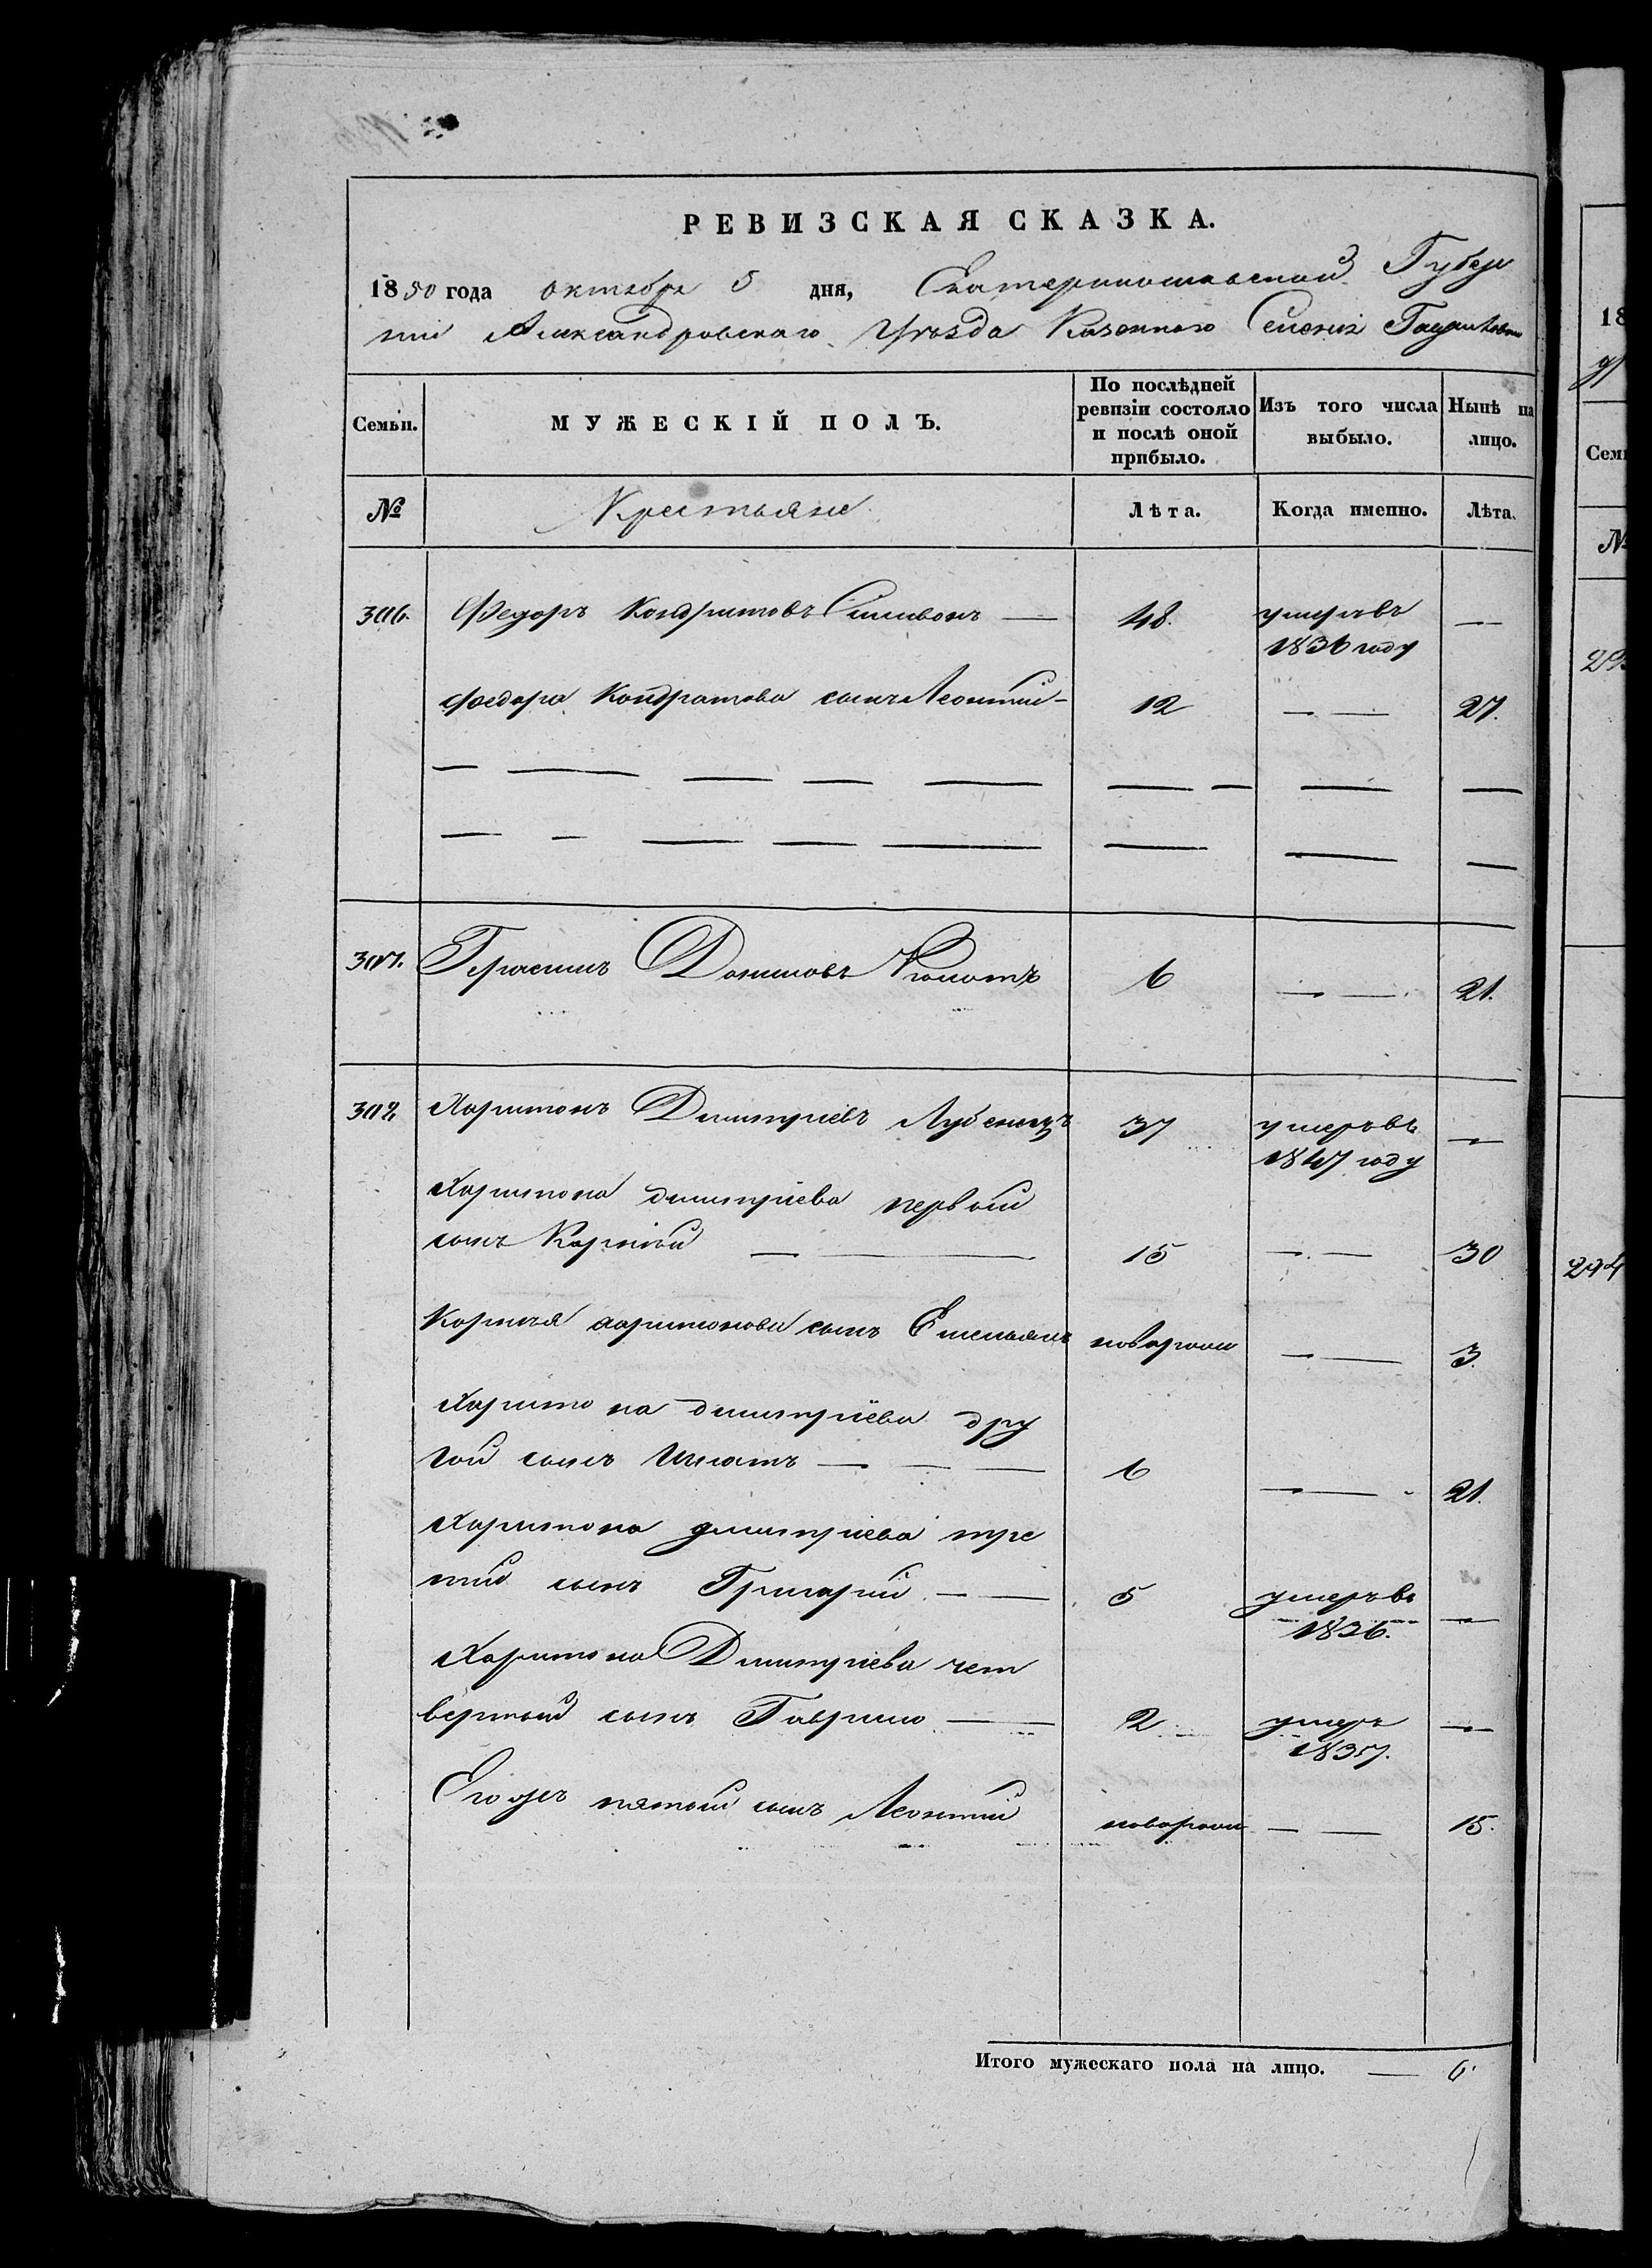 РЕВИЗСКАЯ СКАЗКА.
1850 года октября 5 дня, Екатеринославской Губер
нии Александровскаго Уѣзда Казеннаго Селенія
Семьи. МУЖЕСКІЙ ПОЛЪ. По послѣдней ревизіи состояло и послѣ оной прибыло. Изъ того числа выбыло. Нынѣ на лицо.
№ Крестьяне Лѣта. Когда именно. Лѣта.
306. Федоръ Кондратовъ 48. умеръ въ —
1836 году
Федора Кондратова сынъ Леонтий - 12 — — 27.
307. Герасимъ Даниловъ 6 — — 21.
308 Харитонъ Димитріевъ Лубенецъ 37 умеръ въ —
1847 году
Харитона димитріева первый
сынъ Корнѣй — — 15 — — 30
Корнѣя харитонова сынъ Емельянъ новорож — — 3.
Харитона димитріева дру
гой сынъ Игнатъ — — — 6 — — 21.
Харитона димитріева тре
тий сынъ Григорий — — 5 умеръ въ —
1836.
Харитона Димитріева чет
вертый сынъ Гаврило — 2 умеръ —
1837.
Его же пятый сынъ Леонтий новорож — — 15.
Итого мужескаго пола на лицо. — 6.
18
Сем
№
294